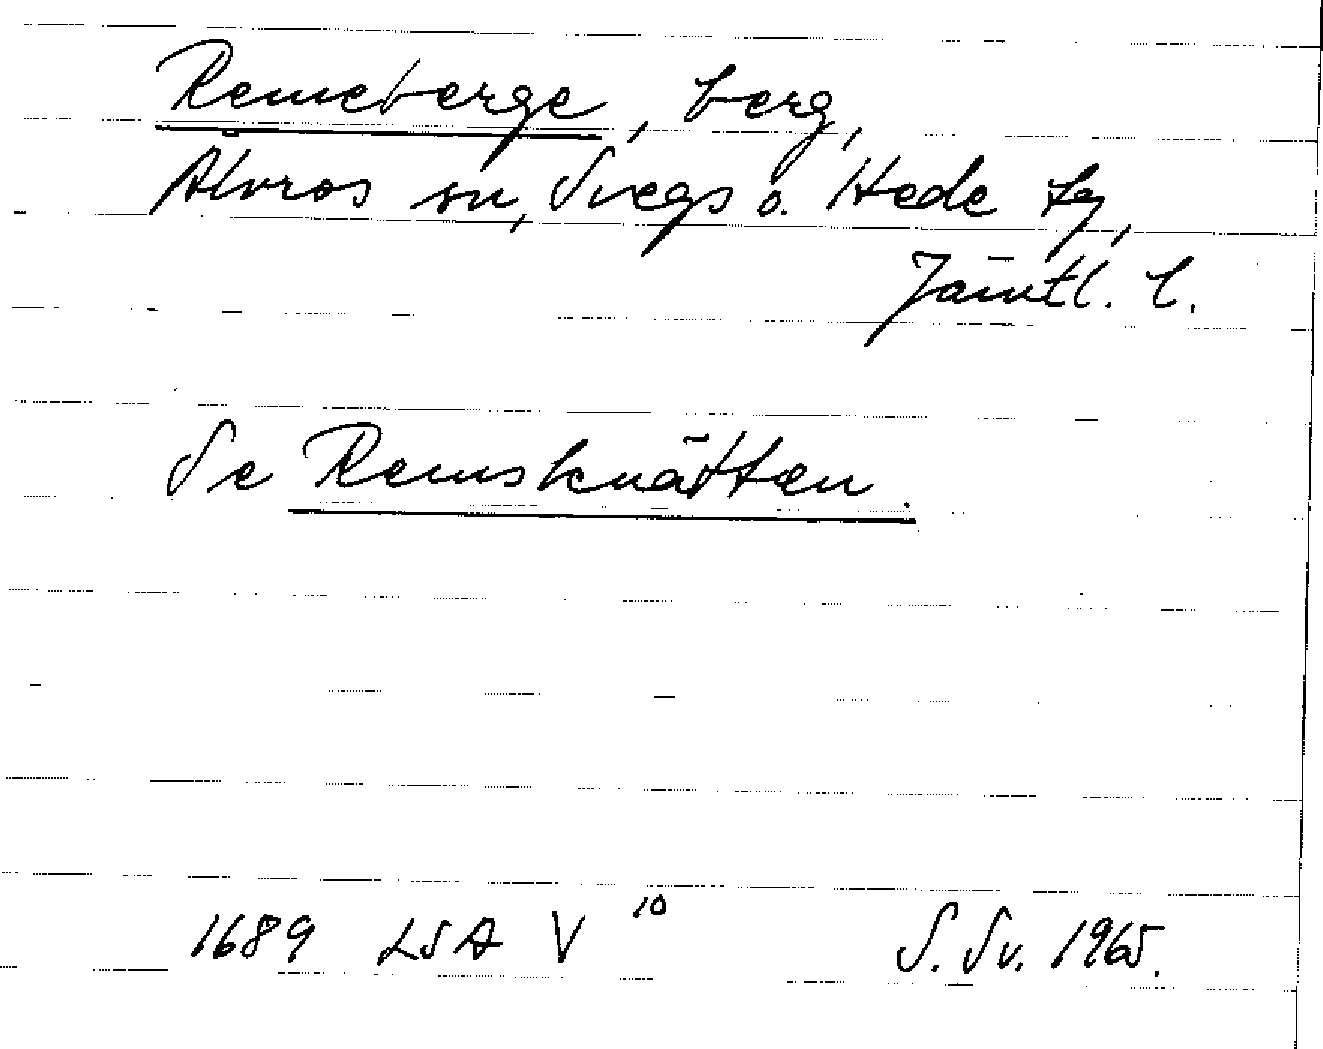 Remeberge, berg,
Älvros sn, Svegs o. Hede tg,
Jämtl. l.
Se Remsknätten.
1689 LSA V 10
S. Sv. 1965.